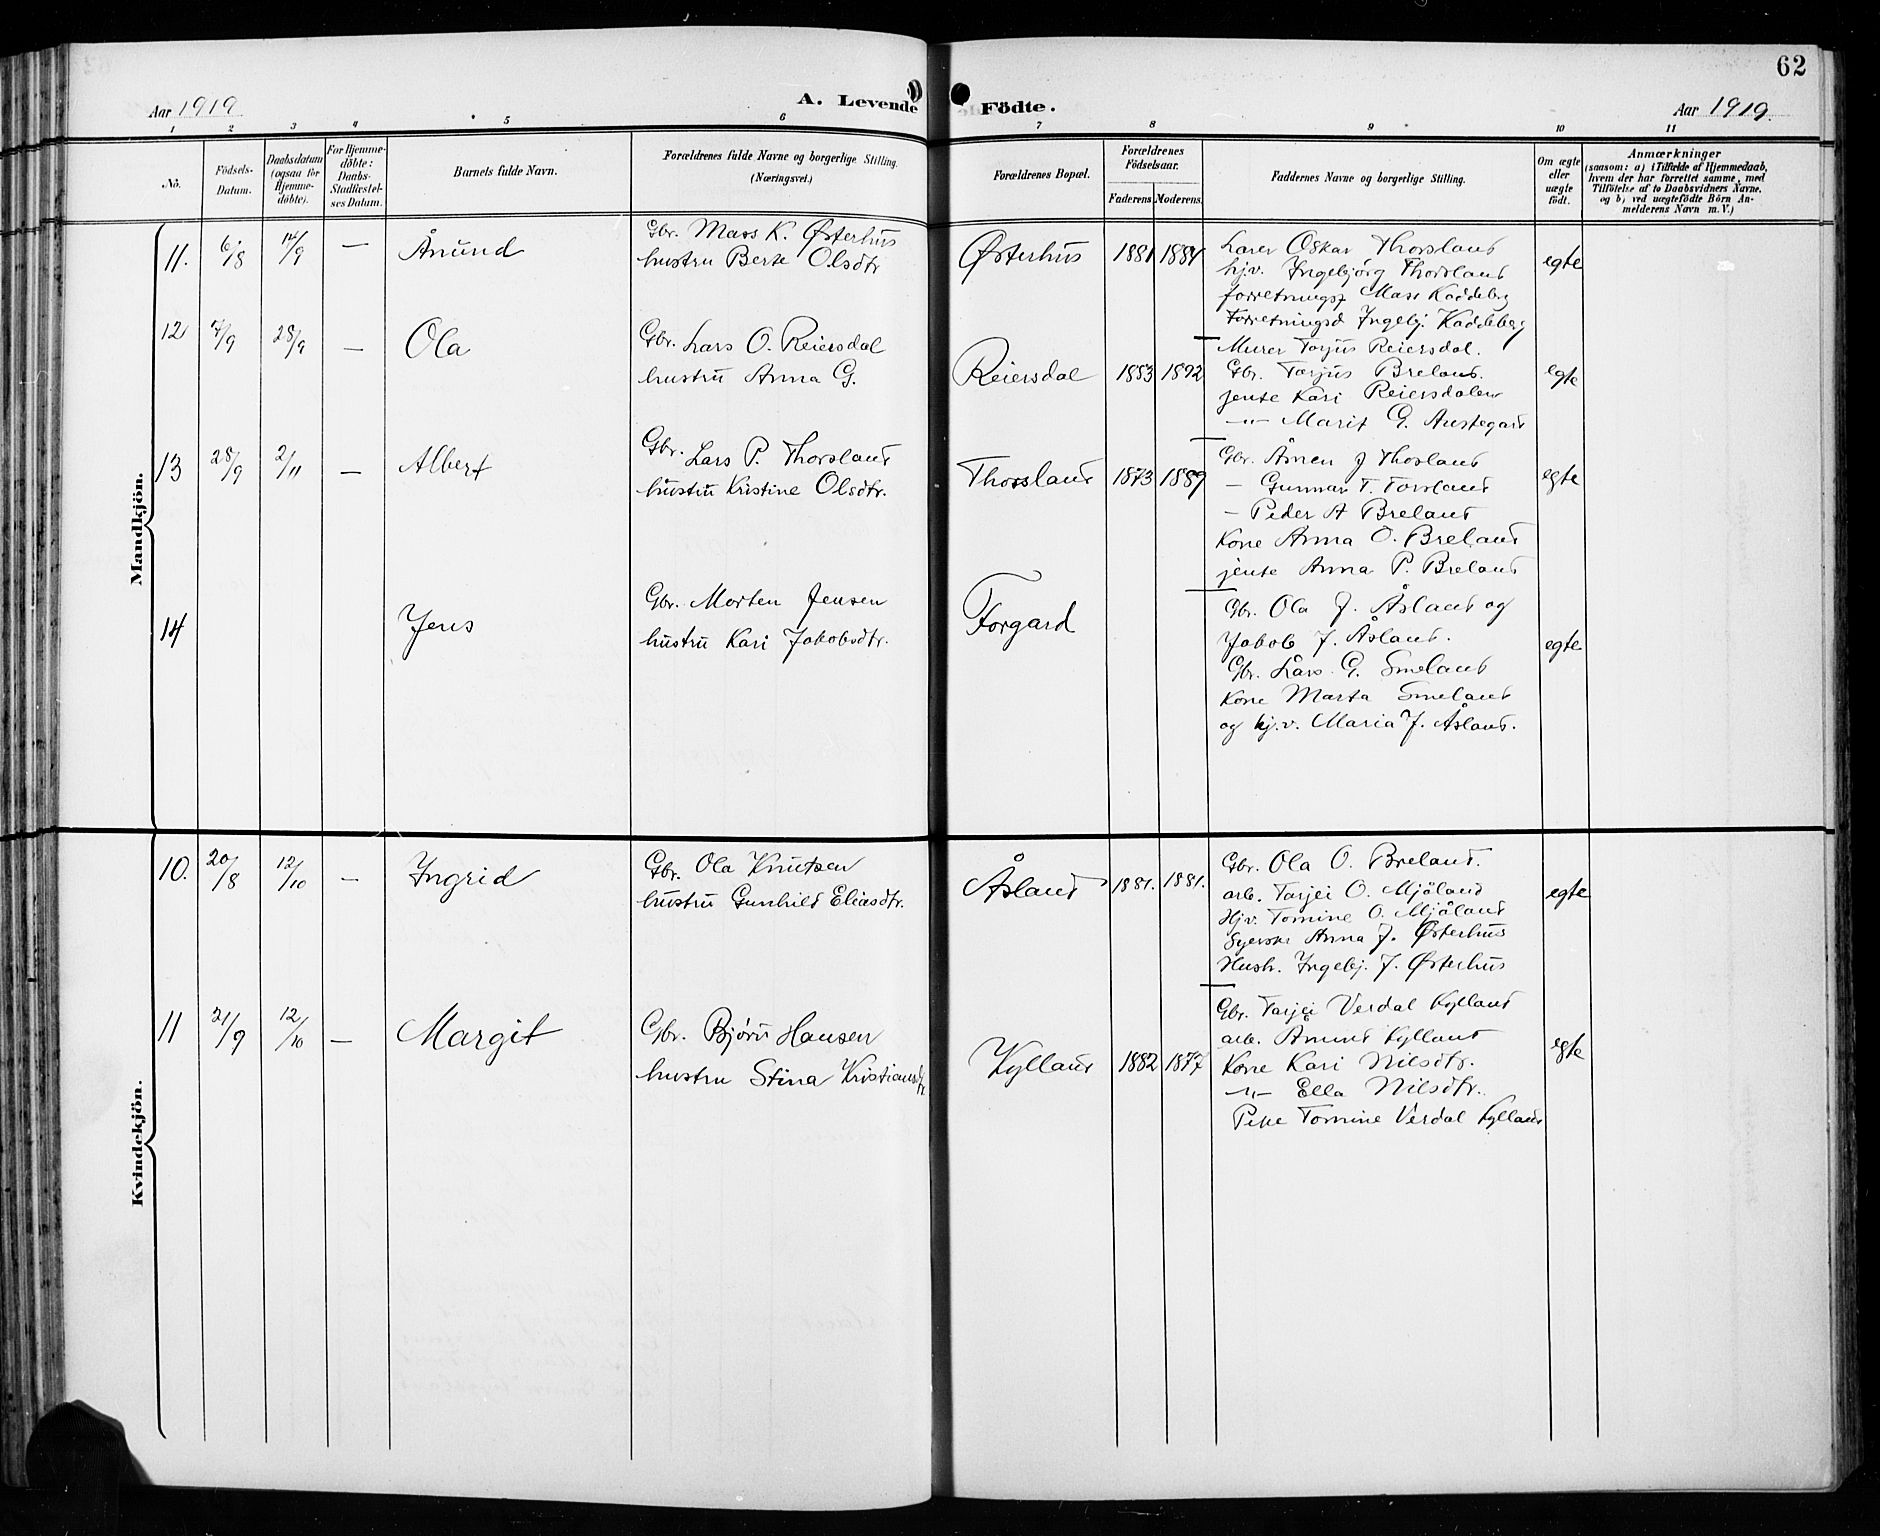 62
Aar 1919
A. Levende Födte.
Aar 1919.
1 2 3 4 5 6 7 8 9 10 11
No.
Födsels-Datum.
Daabsdatum (ogsaa för Hjemme-döbte).
For Hjemme-döbte: Daabs-Stadfæstel-ses Datum.
Barnets fulde Navn.
Forældrenes fulde Navne og borgerlige Stilling.
(Næringsvei.)
Forældrenes Bopæl.
Forældrenes Födselsaar.
Faderens Moderens.
Faddernes Navne og borgerlige Stilling.
Om ægte eller uægte födt.
Anmærkninger
(saasom: a) i Tilfælde af Hjemmedaab,
hvem der har forrettet samme, med
Tilföielse af to Daabsvidners Navne,
og b) ved uægtefödte Börn An-
melderens Navn m. V.)
Mandkjön.
11. 6/8 14/9 — Ånund
Gbr. Mass K. Østerhus
hustru Berte Olsdtr
Østerhus 1881 1884
Lærer Oskar Thorsland
hjv. Ingebjörg Thorsland
forretningsf Mass Kaddeberg
Forretningsd Ingebj. Kaddeberg
Murer Torjus Reiersdal.
egte
12 7/9 28/9 — Ola
Gbr. Lars O. Reiersdal
hustru Anna G.
Reiersdal 1883 1892
Gbr. Torjus Breland.
jente Kari Reiersdalen
—"— Marit G. Austegard
egte
13 28/9 2/11 — Albert
Gbr. Lars P. Thorsland
hustru Kristine Olsdtr.
Thorsland 1873 1889
Gbr. Åmen J Thosland
— Gunnar T. Torsland
— Peder A Breland
Kone Anna O. Breland
jente Anna P. Breland
egte
14 Jens
Gbr. Morten Jensen
hustru Kari Jakobsdtr.
Forgard
Gbr. Ola J. Åsland og
Jakob J. Åsland.
Gbr. Lars G. Smeland
Kone Marta Smeland
og hj.v. Maria J. Åsland.
egte
Kvindekjön.
10. 20/8 12/10 — Ingrid
Gbr. Ola Knutsen
hustru Gunhild Eliasdtr.
Åsland 1881. 1881.
Gbr. Ola O. Breland.
arb. Tarjei O. Mjåland
Hjv. Tomine O. Mjåland
Syerske Anna J. Østerhus
Hush. Ingebj. J. Østerhus
egte
11 21/9 12/10 — Margit
Gbr. Bjørn Hansen
hustru Stina Kristiansdtr
Kylland 1882 1877
Gbr. Tarjei Verdal Kylland
arb. Ånund Kylland
Kone Kari Nilsdtr.
—"— Ella Nilsdtr.
Pike Tomine Verdal Kylland
egte